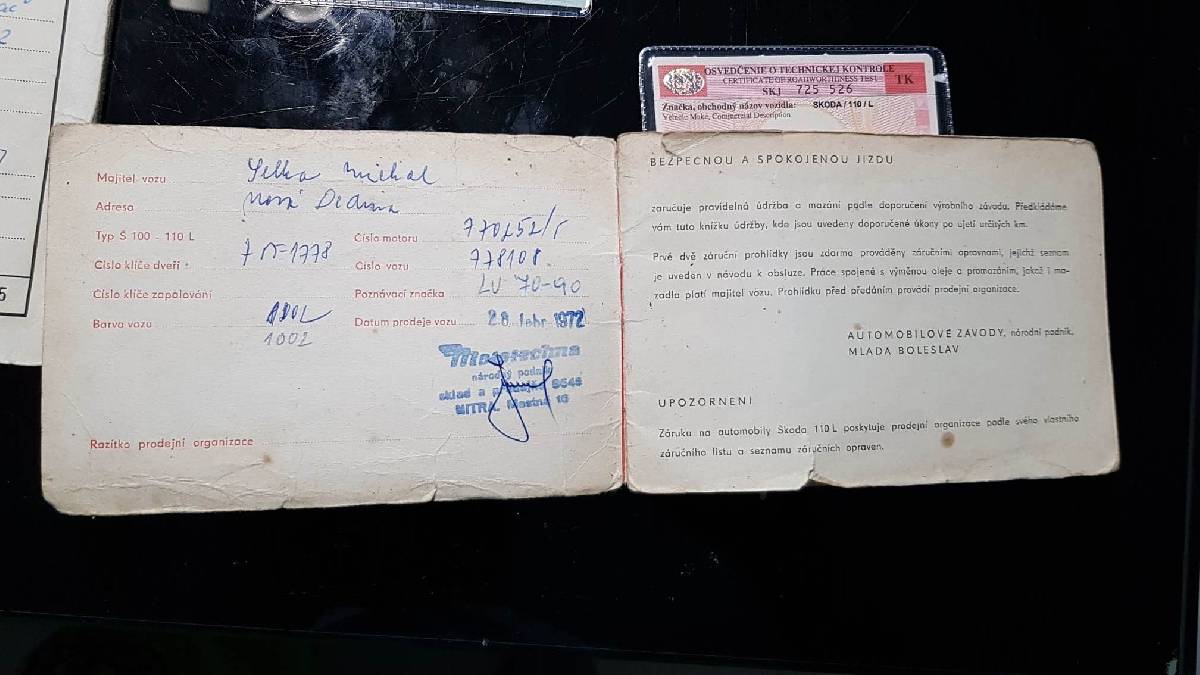 2
5
OSVEDČENIE O TECHNICKEJ KONTROLE
CERTIFICATE OF ROADWORTHINESS TEST
TK
SKJ 725 526
Značka, obchodný názov vozidla: SKODA / 110 / L
Vehicle Make, Commercial Description
Majitel vozu Michal
Adresa Nová Dedina
Typ Š 100 - 110 L
Číslo motoru
Číslo klíče dveří
Číslo vozu 778108
Číslo klíče zapalování
Poznávací značka LV 70-90
Barva vozu 110L
1002
Datum prodeje vozu 28. febr. 1972
Mototechna
národný podnik
sklad a
NITRA, Mostná 16
Razítko prodejní organizace
BEZPEČNOU A SPOKOJENOU JÍZDU
zaručuje pravidelná údržba a mazání podle doporučení výrobního závodu. Předkládáme
vám tuto knížku údržby, kde jsou uvedeny doporučené úkony po ujetí určitých km.
Prvé dvě záruční prohlídky jsou zdarma prováděny záručními opravnami, jejichž seznam
je uveden v návodu k obsluze. Práce spojené s výměnou oleje a promazáním, jakož i ma-
zadla platí majitel vozu. Prohlídku před předáním provádí prodejní organizace.
AUTOMOBILOVÉ ZÁVODY, národní podnik,
MLADÁ BOLESLAV
UPOZORNĚNÍ
Záruku na automobily Škoda 110 L poskytuje prodejní organizace podle svého vlastního
záručního listu a seznamu záručních opraven.